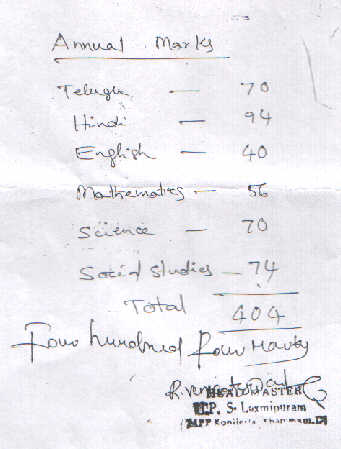 Annual Marks
Telugu — 70
Hindi — 94
English — 40
Mathematics — 56
Science — 70
Social Studies — 74
Total 404
Four hundred four Marks
HEADMASTER
P. S. Laxmipuram